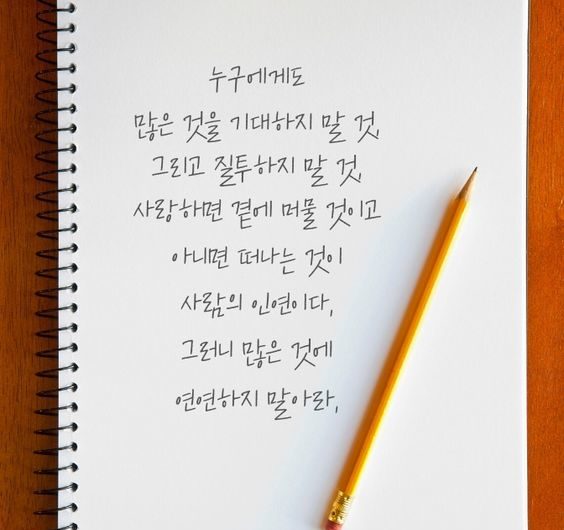 누구에게도
많은 것을 기대하지 말 것,
그리고 질투하지 말 것,
사랑하면 곁에 머물 것이고
아니면 떠나는 것이
사람의 인연이다,
그러니 많은 것에
연연하지 말아라,